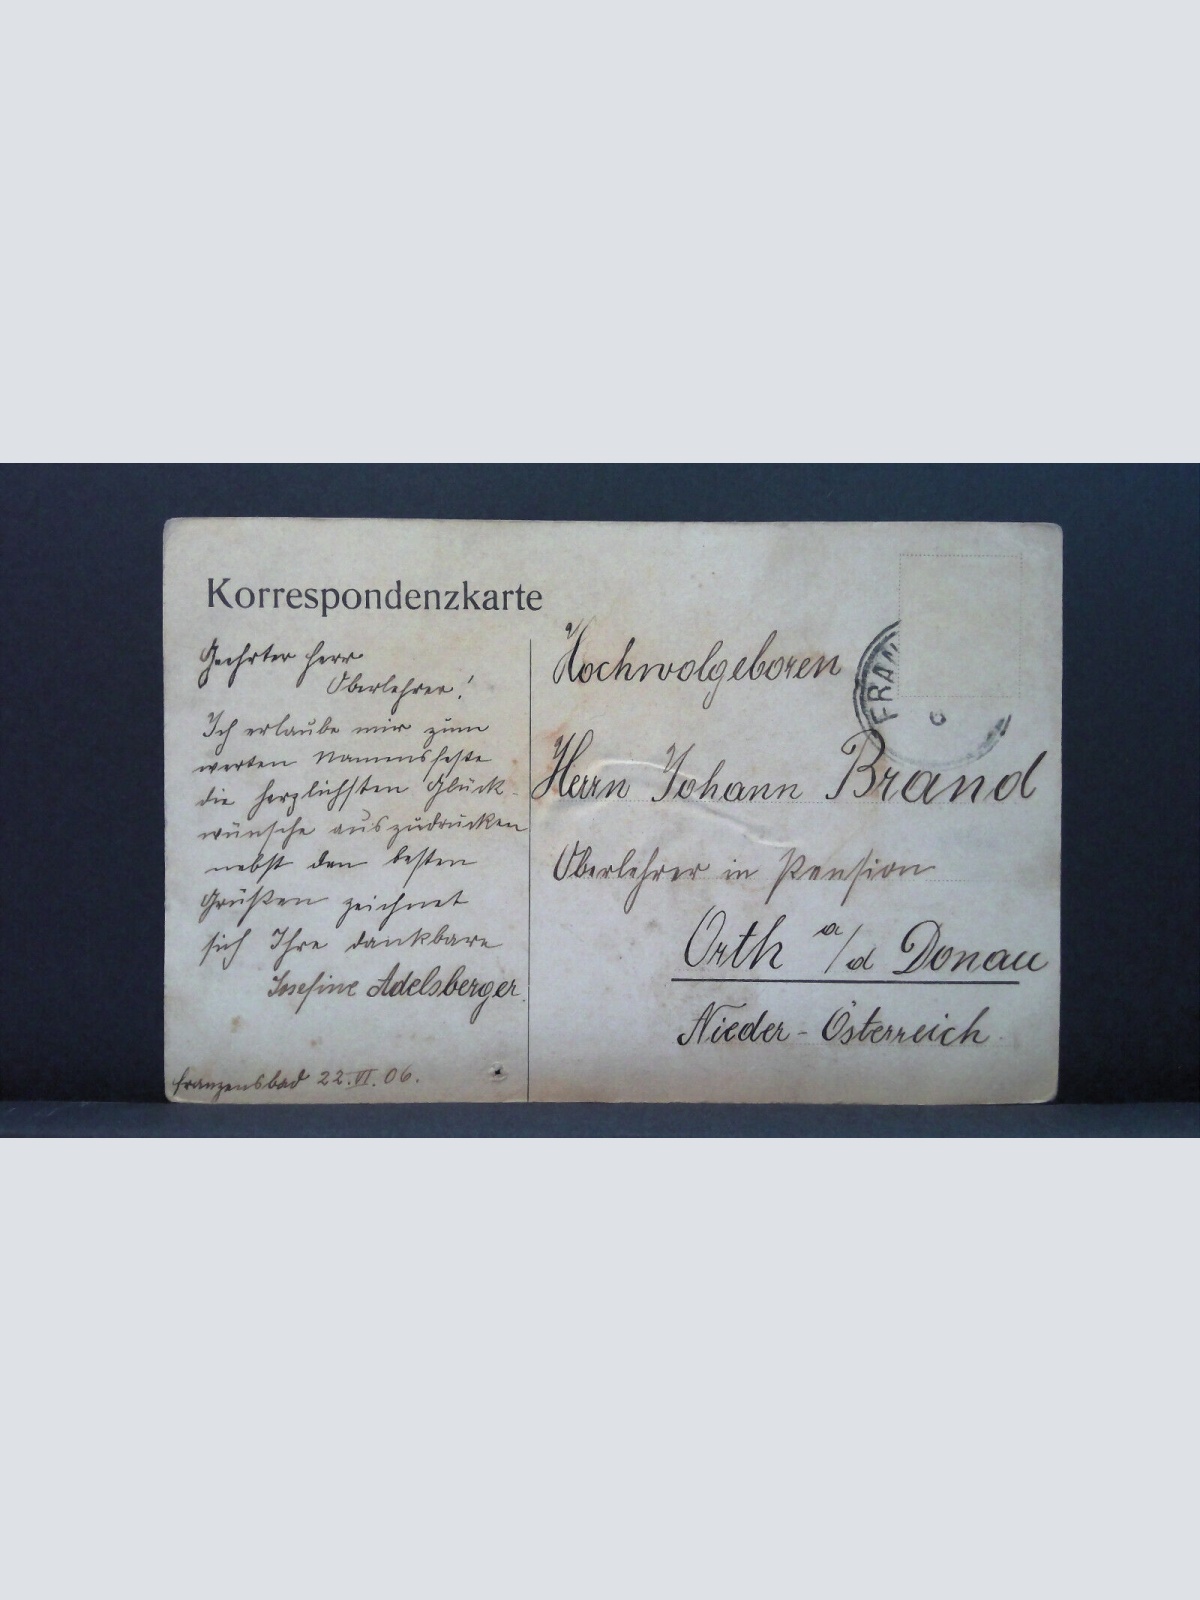 Korrespondenzkarte
Geehrter Herr
Oberlehrer!
Ich erlaube mir zum
werten Namensfeste
die herzlichsten Glück-
wünsche auszudrücken
nebst den besten
Grüßen zeichnet
sich Ihre dankbare
Josefine Adelsberger.
Franzensbad 22.VI.06.
FRAN
6
Hochwolgeboren
Herrn Johann Brand
Oberlehrer in Pension
Orth a/d Donau
Nieder-Österreich.